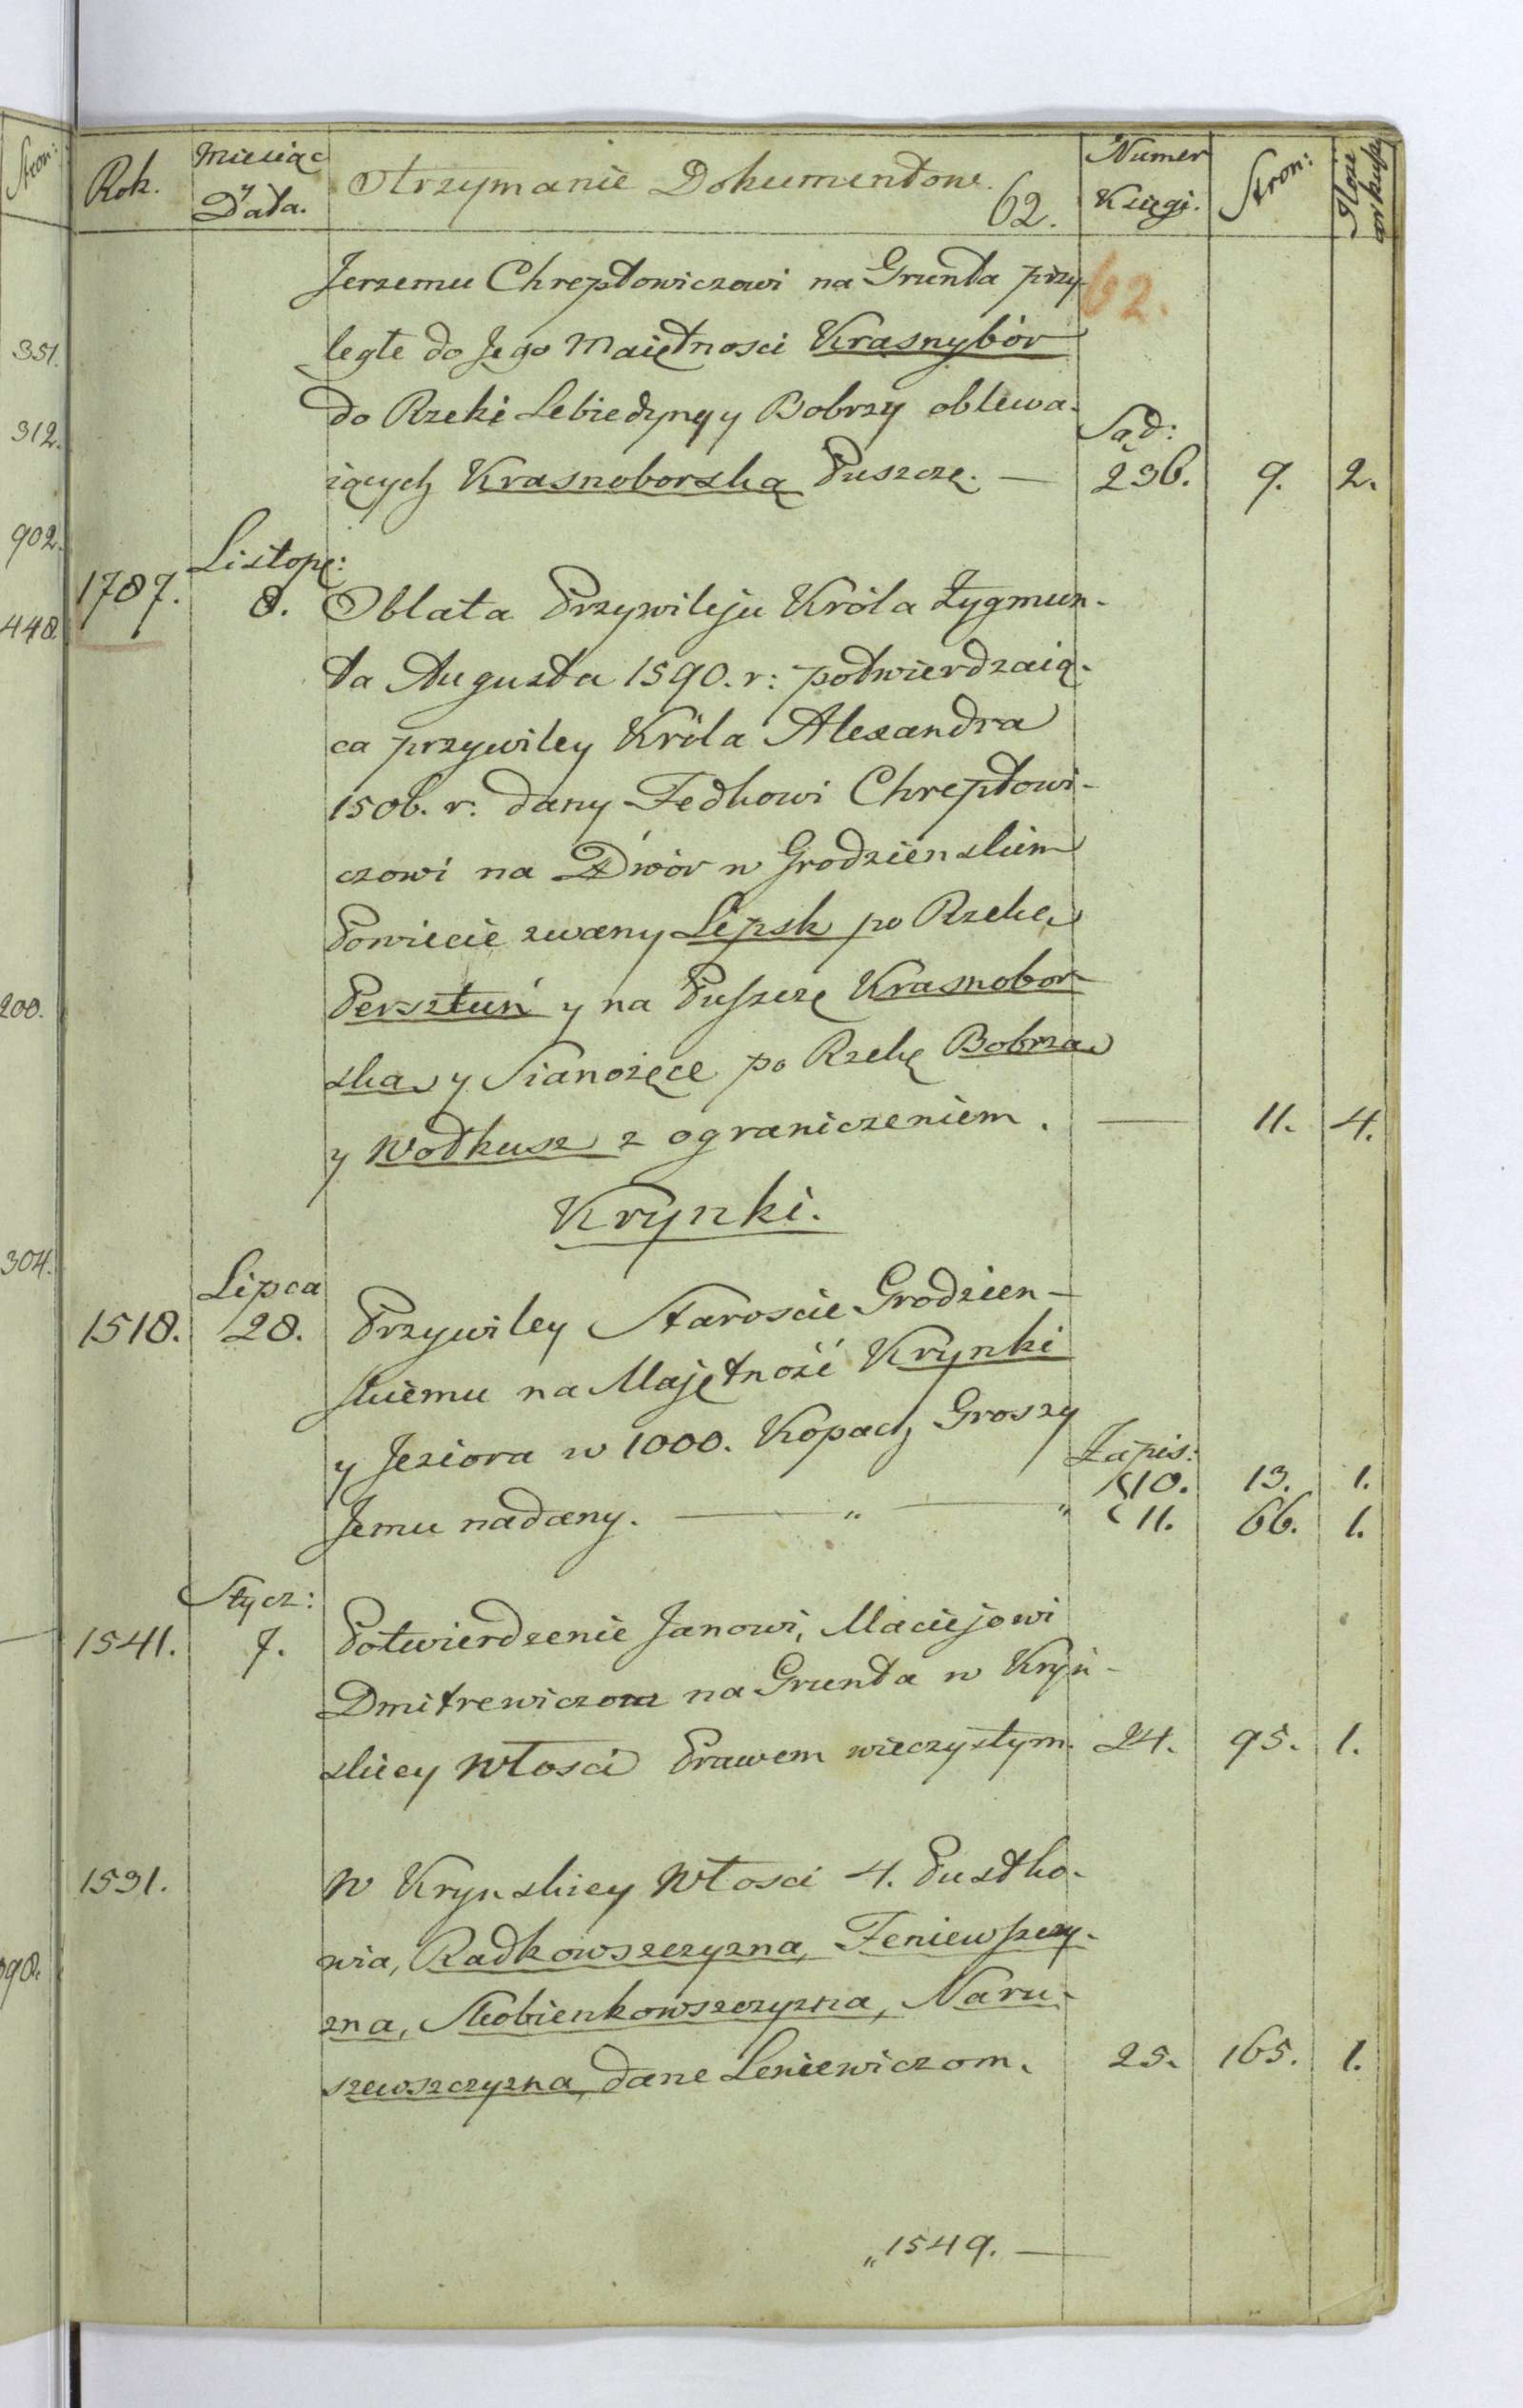 Stron:
Rok.
Miesiąc y Data.
Otrzymanie Dokumentow.
62.
Numer Księgi.
Stron:
Ilość arkuszy
62.
Jerzemu Chreptowiczowi na Grunta przy-
ległe do Jego Maiętnosci Krasnybór
do Rzeki Lebiedzyny y Bobrzy oblewa-
iących Krasnoborską Puszczę. — Sąd: 236. 9. 2.
1787. Listop: 8. Oblata Przywileju Króla Zygmun-
ta Augusta 1590. r: potwierdzaią-
ca przywiley Króla Alexandra
1506. r: dany Fedkowi Chreptowi-
czowi na Dwór w Grodzienskim
Powiecie zwany Lipsk po Rzekę
Persztuń y na Puszczę Krasnobor-
ską y Sianożęce po Rzekę Bobrzą
y Wołkusz z ograniczeniem. — 11. 4.
Krynki.
1518. Lipca 28. Przywiley Staroscie Grodzien-
skiemu na Majętność Krynki
y Jeziora w 1000. Kopach Groszy
Jemu nadany. — " — " Zapis: 10. 13. 1.
11. 66. 1.
1541. Stycz: 7. Potwierdzenie Janowi, Maciejowi
Dmitrewiczom na Grunta w Kryn-
skiey Włosci Prawem wieczystym. 24. 95. 1.
1531. W Krynskiey Włosci 4. Pustko-
wia, Radkowszczyzna, Feniewszczy-
zna, Skobienkowszczyzna, Naru-
szewszczyzna, dane Leniewiczom. 25. 165. 1.
"1549. —
351.
312.
902.
448.
200.
304.